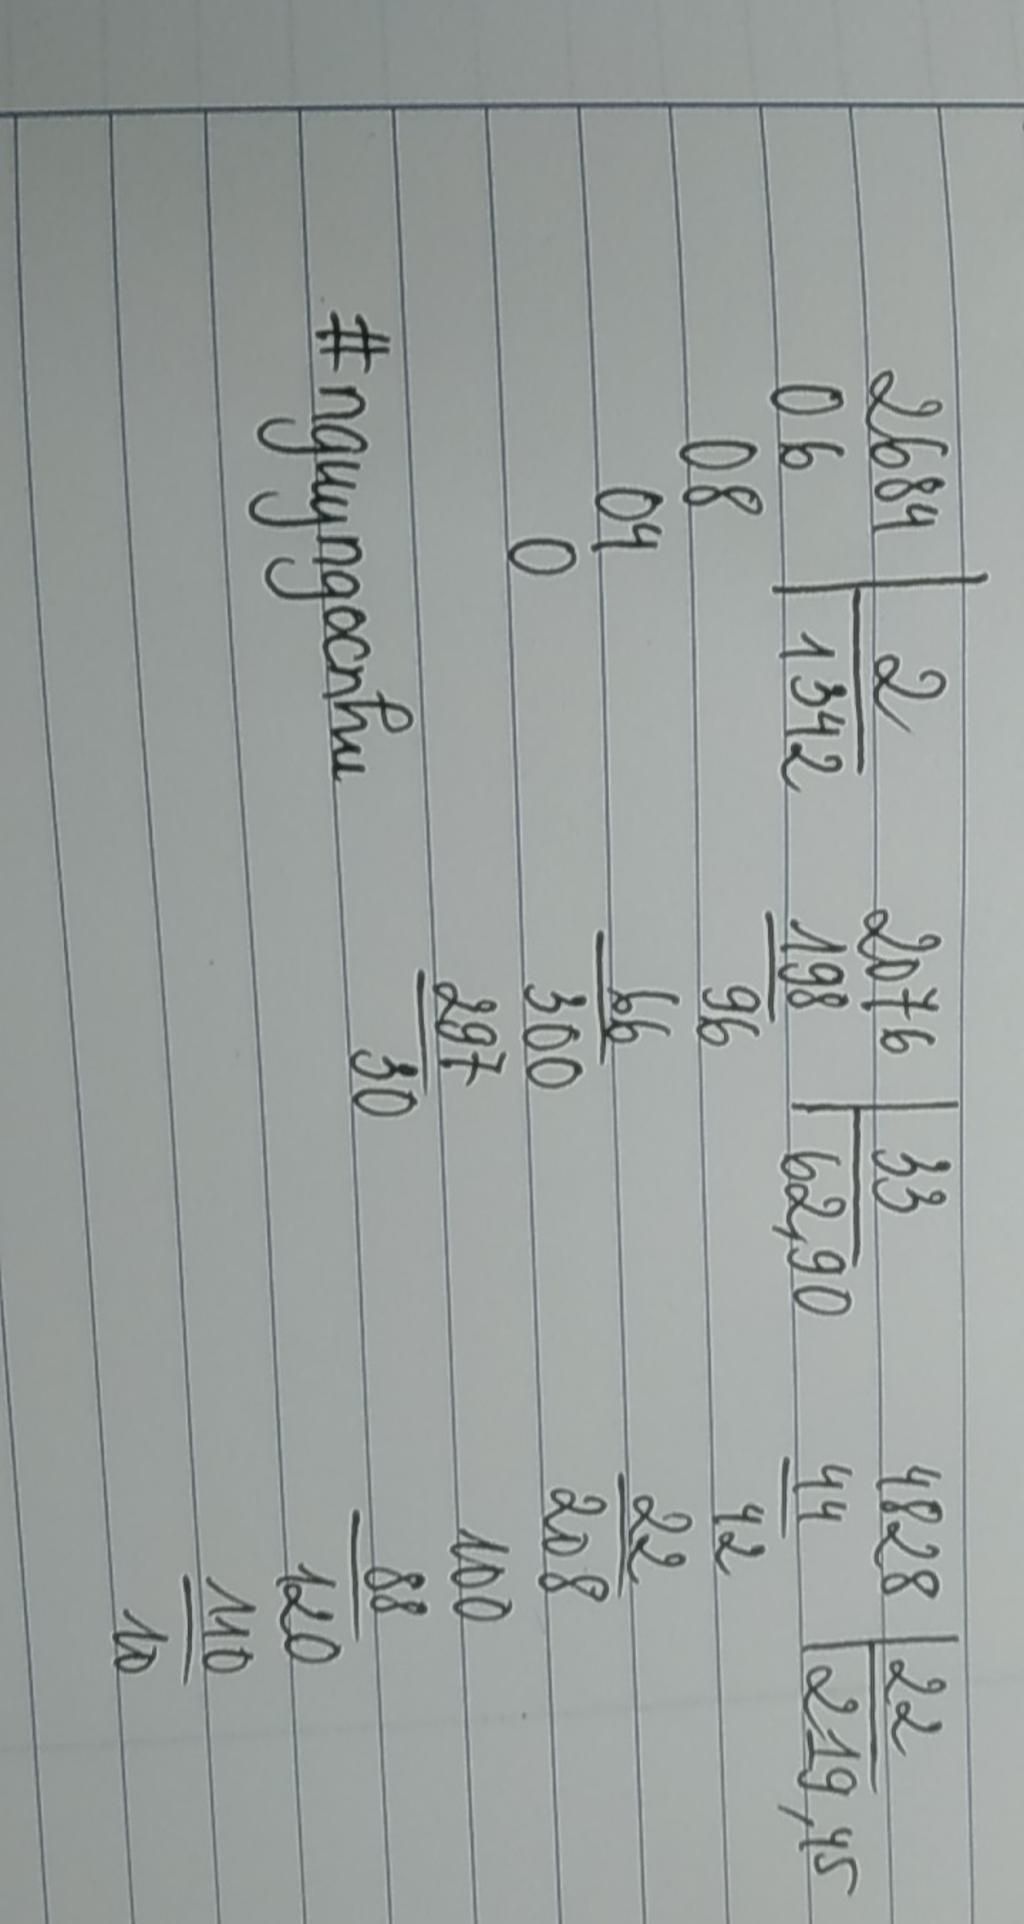 2684 | 2 2076 | 33 4828 | 22
06 1342 198 62,90 44 219,45
08 96 42
04 66 22
0 300 208
297 100
30 88
120
110
10